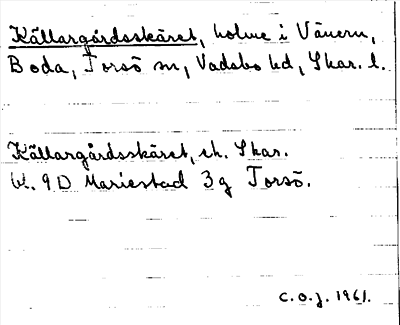 Källargårdsskäret, holme i Vänern,
Boda, Torsö sn, Vadsbo hd, Skar. l.
Källargårdsskäret, ek. Skar.
bl. 9D Mariestad 3g Torsö.
C.O.J. 1961.